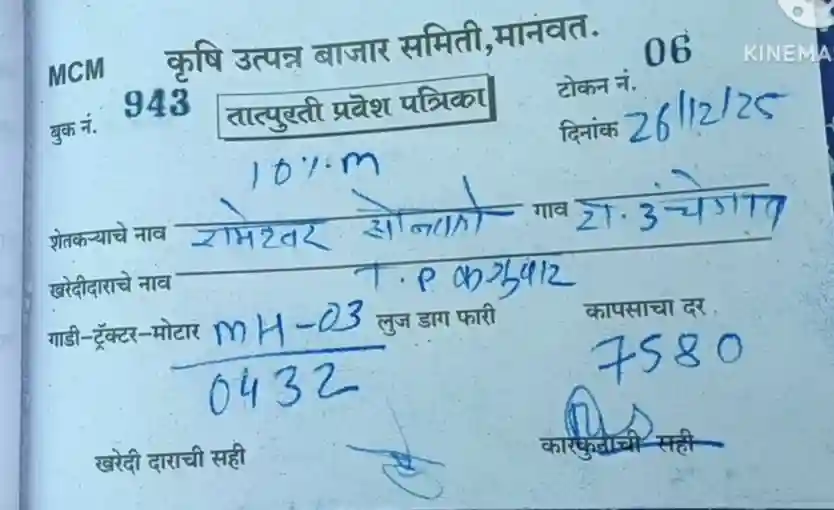 MCM कृषि उत्पन्न बाजार समिती, मानवत.
KINEMA
बुक नं. 943 तात्पुरती प्रवेश पत्रिका टोकन नं. 06
दिनांक 26/12/25
10%.m
शेतकऱ्याचे नाव रामेश्वर सोनवने गाव रा. उंचेगाव
खरेदीदाराचे नाव T.P
गाडी-ट्रॅक्टर-मोटार MH-03 लुज डाग फारी कापसाचा दर.
0432 7580
खरेदी दाराची सही कारकुनाची सही